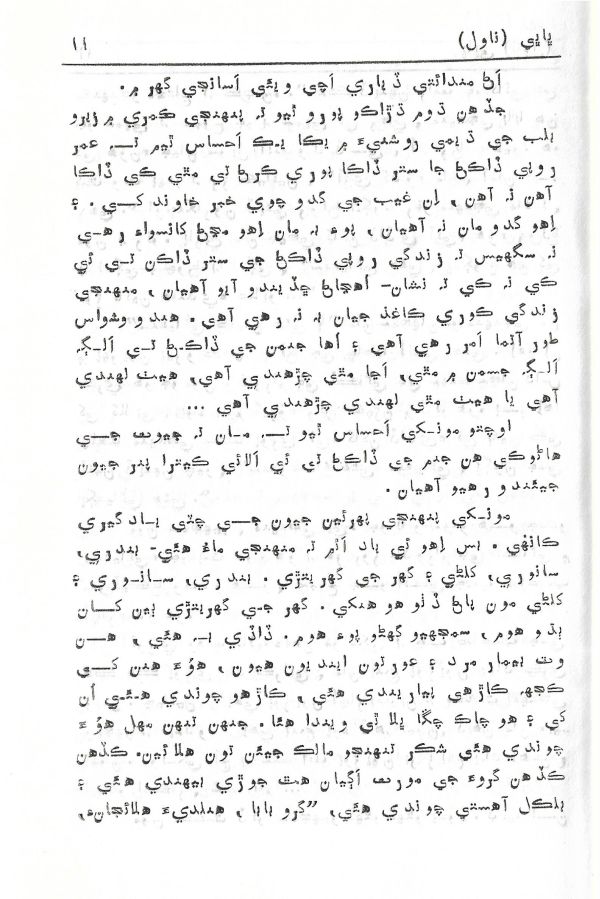 پاپي (ناول) ١١
اَڻ مندائتي ڏياري اَچي ويئي اَسانجي گهر ۾.
جڏهن ڌوم ڌڙاڪو پورو ٿيو تہ پنهنجي ڪمري ۾ زيرو
بلب جي ڌيمي روشنيءَ ۾ يڪا يڪ اَحساس ٿيم تہ عمر
روپي ڏاڪڻ جا ستر ڏاڪا پوري ڪرڻ تي مٿي ڪي ڏاڪا
آهن نہ آهن، اِن غيب جي گدو چوپي خبر خاوند کي. ۽
اِهو گدو مان نہ آهيان، پوءِ بہ مان اِهو مڃڻ کانسواءِ رهي
نہ سگهيس تہ زندگي روپي ڏاڪڻ جي ستر ڏاڪن تي ئي
ڪي نہ ڪي تہ نشان- اُهڃاڻ ڇڏيندو آيو آهيان، منهنجي
زندگي ڪوري ڪاغذ جيان بہ نہ رهي آهي. هندو وشواس
طور آتما اَمر رهي آهي ۽ اُها جنمن جي ڏاڪڻ تي اَلڳ
اَلڳ جسمن ۾ مٿي، اَڃا مٿي چڙهندي آهي، هيٺ لهندي
آهي يا هيٺ مٿي لهندي چڙهندي آهي ...
اوچتو مونکي اَحساس ٿيو تہ مان تہ جيوت جي
هاڻوڪي هن جنم جي ڏاڪڻ تي ئي اَلائي ڪيترا پنر جيون
جيئندو رهيو آهيان.
مونکي پنهنجي پهرئين جيون جي چٽي يادگيري
ڪانهي. بس اِهو ئي ياد اَٿم تہ منهنجي ماءُ هئي- بندري،
سانوري، ڪلڻي ۽ گهر جي گهريتڙي. بندري، سانوري ۽
ڪلڻي مون پاڻ ڏٺو هو هنکي. گهر جي گهريتڙي ٻين کان
ٻڌو هوم، سمجهيو گهڻو پوءِ هوم. ڏاڏي بہ هئي، هن
وٽ بيمار مرد ۽ عورتون اينديون هيون، هوءَ هنن کي
ڪجهہ ڪاڙهي پياريندي هئي، ڪاڙهو چوندي هئي اُن
کي ۽ هو چاڪ چڱا ڀلا ٿي ويندا هئا. جنهن تنهن مهل هوءَ
چوندي هئي شڪر تنهنجو مالڪ جيئن تون هلائين. ڪڏهن
ڪڏهن گروءَ جي مورت اَڳيان هٿ جوڙي بيهندي هئي ۽
بلڪل آهستي چوندي هئي، ”گرو بابا، هنلديءَ هلائجانءِ،